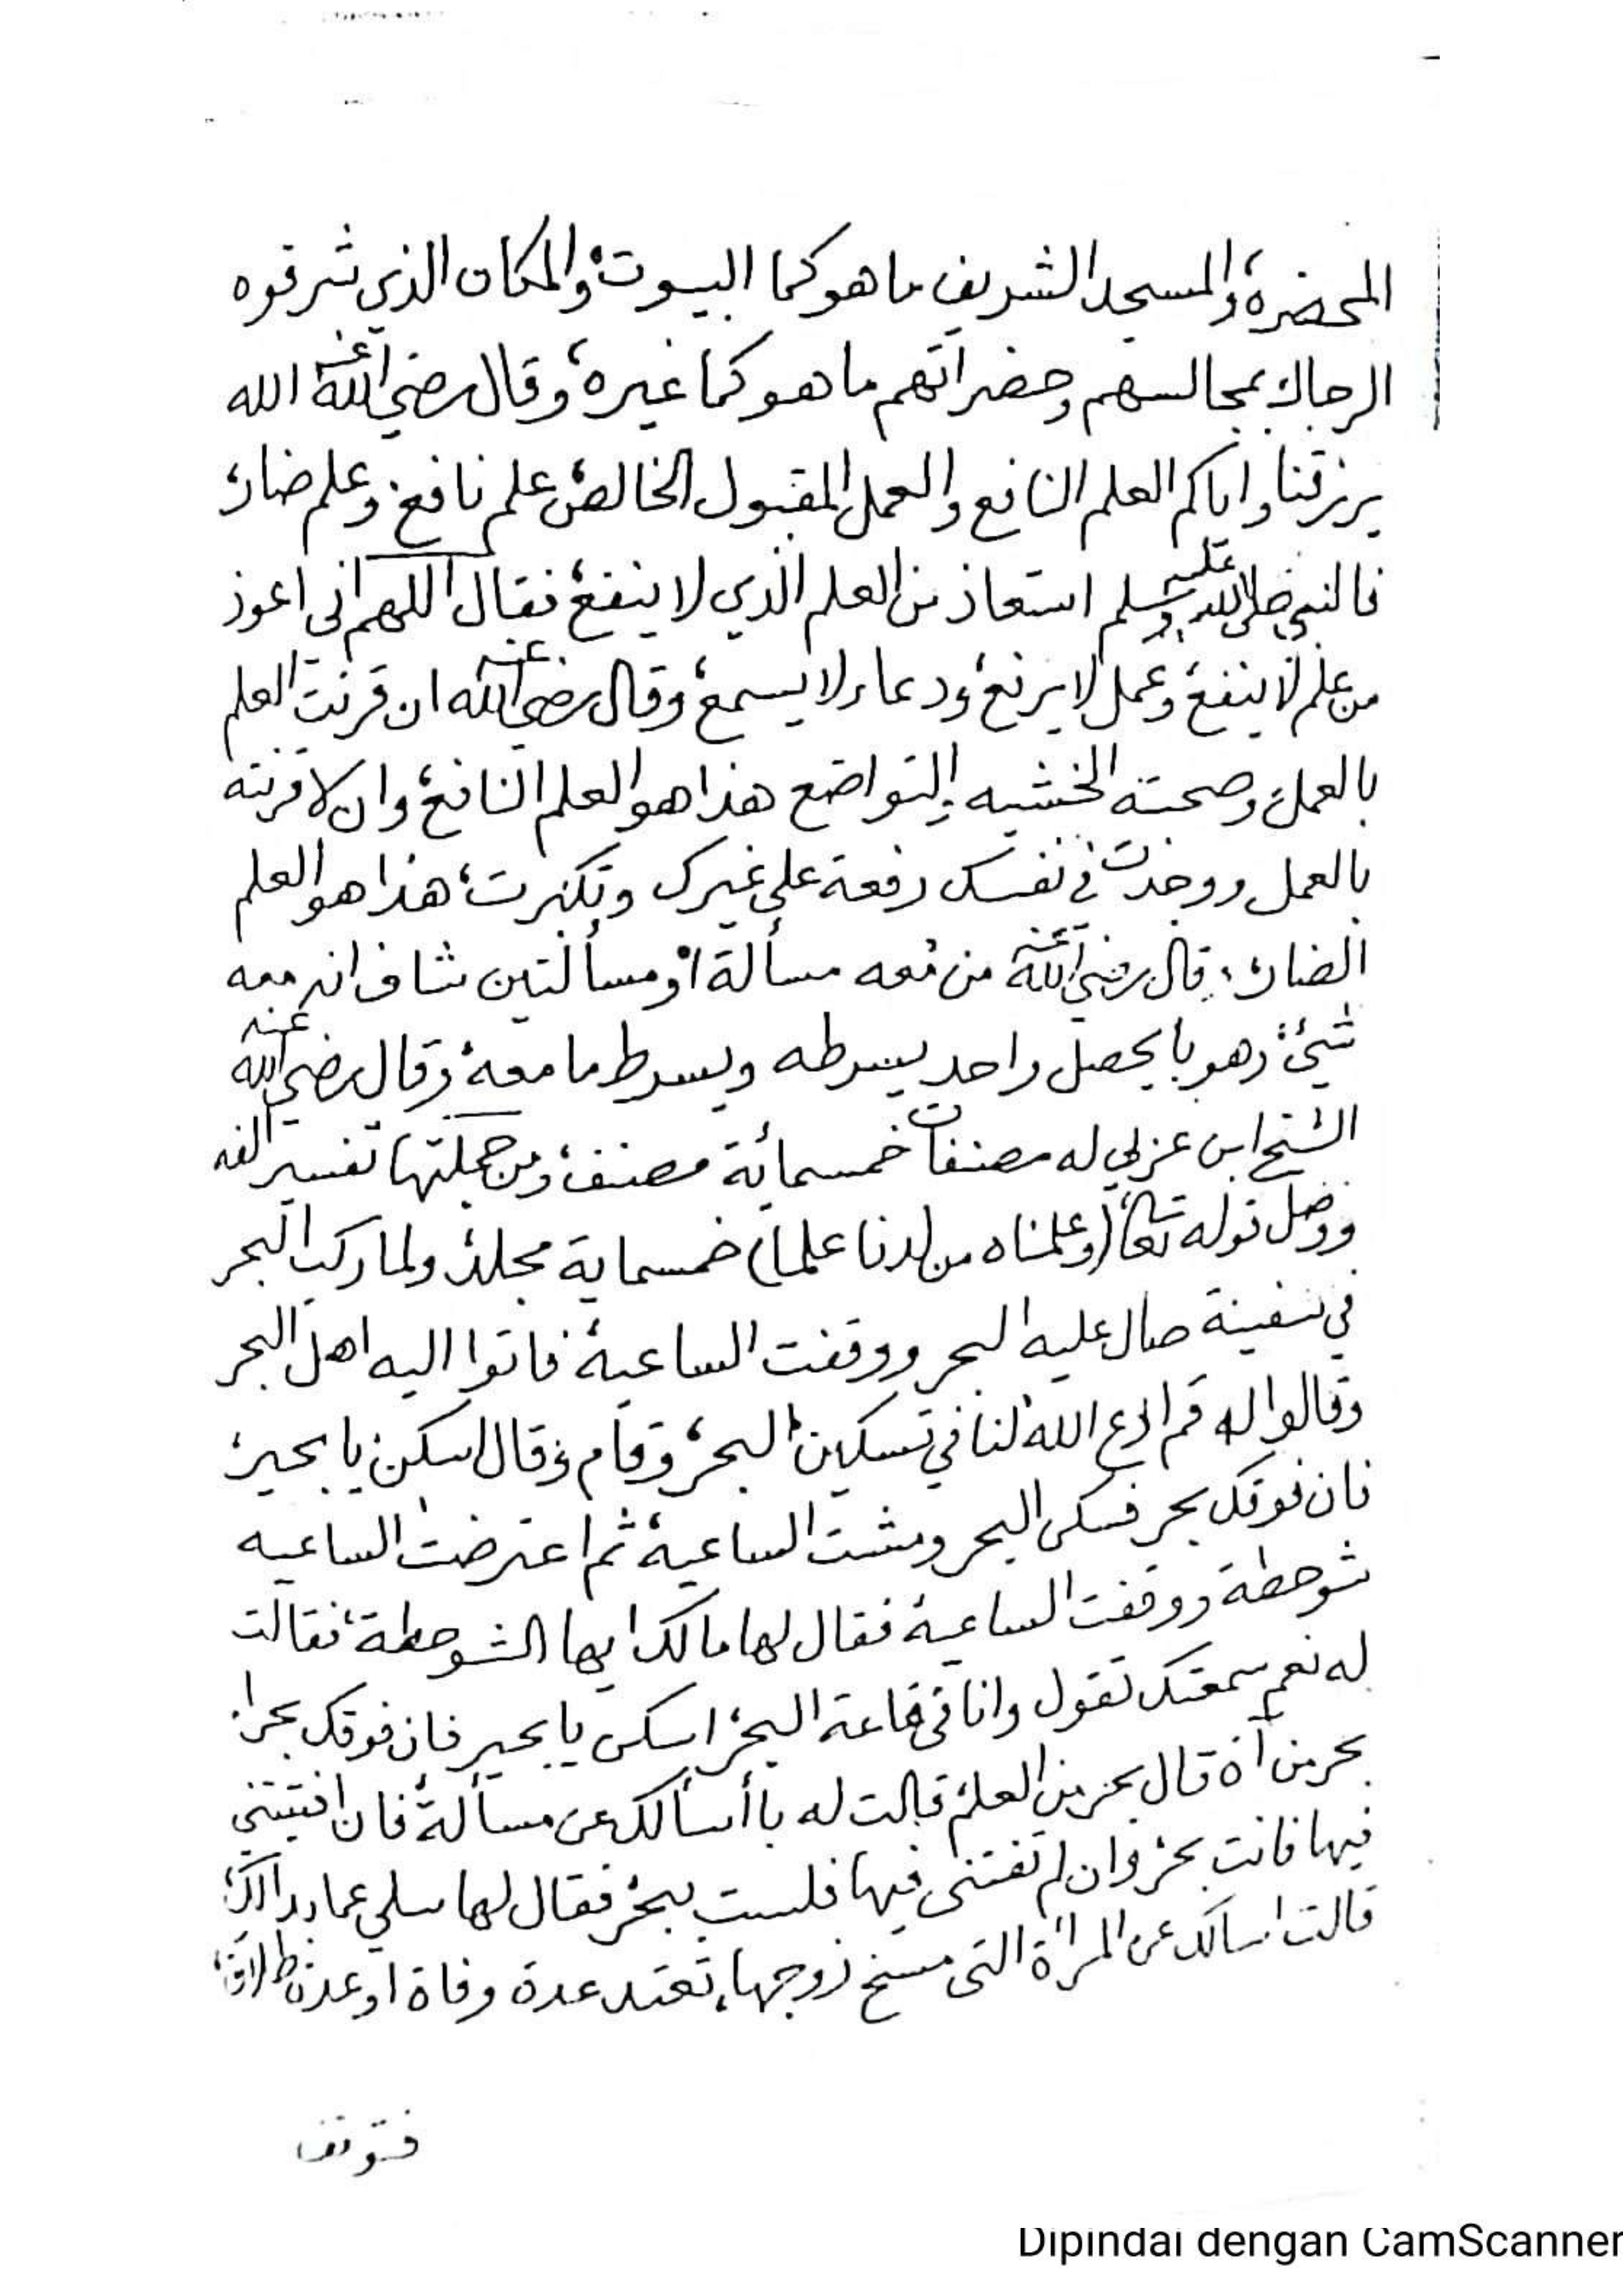 المحضرة والمسجد الشريف ما هو كما البيوت والمكان الذي شرفوه
الرجال بمجالسهم وحضراتهم ما هو كما غيره، وقال رضي الله عنه الله
يرزقنا واياكم العلم النافع والعمل المقبول الخالص علم نافع وعلم ضار
فالنبي صلى الله عليه وسلم استعاذ من العلم الذي لا ينفع فقال اللهم اني اعوذ
من علم لا ينفع وعمل لا يرفع ودعاء لا يسمع، وقال رضي الله عنه ان قرنت العلم
بالعمل وصحبته الخشيه والتواضع هذا هو العلم النافع، وان لا قرنته
بالعمل ووجدت في نفسك رفعة على غيرك وتكبرت، هذا هو العلم
الضار، قال رضي الله عنه من معه مسألة او مسألتين شاف انه معه
شيئ، وهو با يحصل واحد يسرطه ويسرط ما معه، وقال رضي الله عنه
الشيخ ابن عربي له مصنفات خمسمائة مصنف، ومن جملتها تفسير الفه
ووصل قوله تعالى (وعلمناه من لدنا علما) خمسماية مجلد، ولما ركب البحر
في سفينة صال عليه البحر ووقفت الساعية فاتوا اليه اهل البحر
وقالوا له قم ادع الله لنا في تسكين البحر، وقام وقال اسكن يا بحير
فان فوقك بحر فسكن البحر ومشت الساعية، ثم اعترضت الساعيه
شوحطة ووقفت الساعية فقال لها مالك ايها الشوحطة، فقالت
له نعم سمعتك تقول وانا في قاعة البحر اسكن يا بحير فان فوقك بحرا
بحر من آة قال بحر من العلم قالت له با أسألك عن مسألة فان افتيتني
فيها فانت بحر وان لم تفتني فيها فلست ببحر فقال لها سلي عما بدا لك،
قالت اسالك عن المرأة التي مسخ زوجها، تعتد عدة وفاة او عدة طلاق،
فتوقف
Dipindai dengan CamScanner